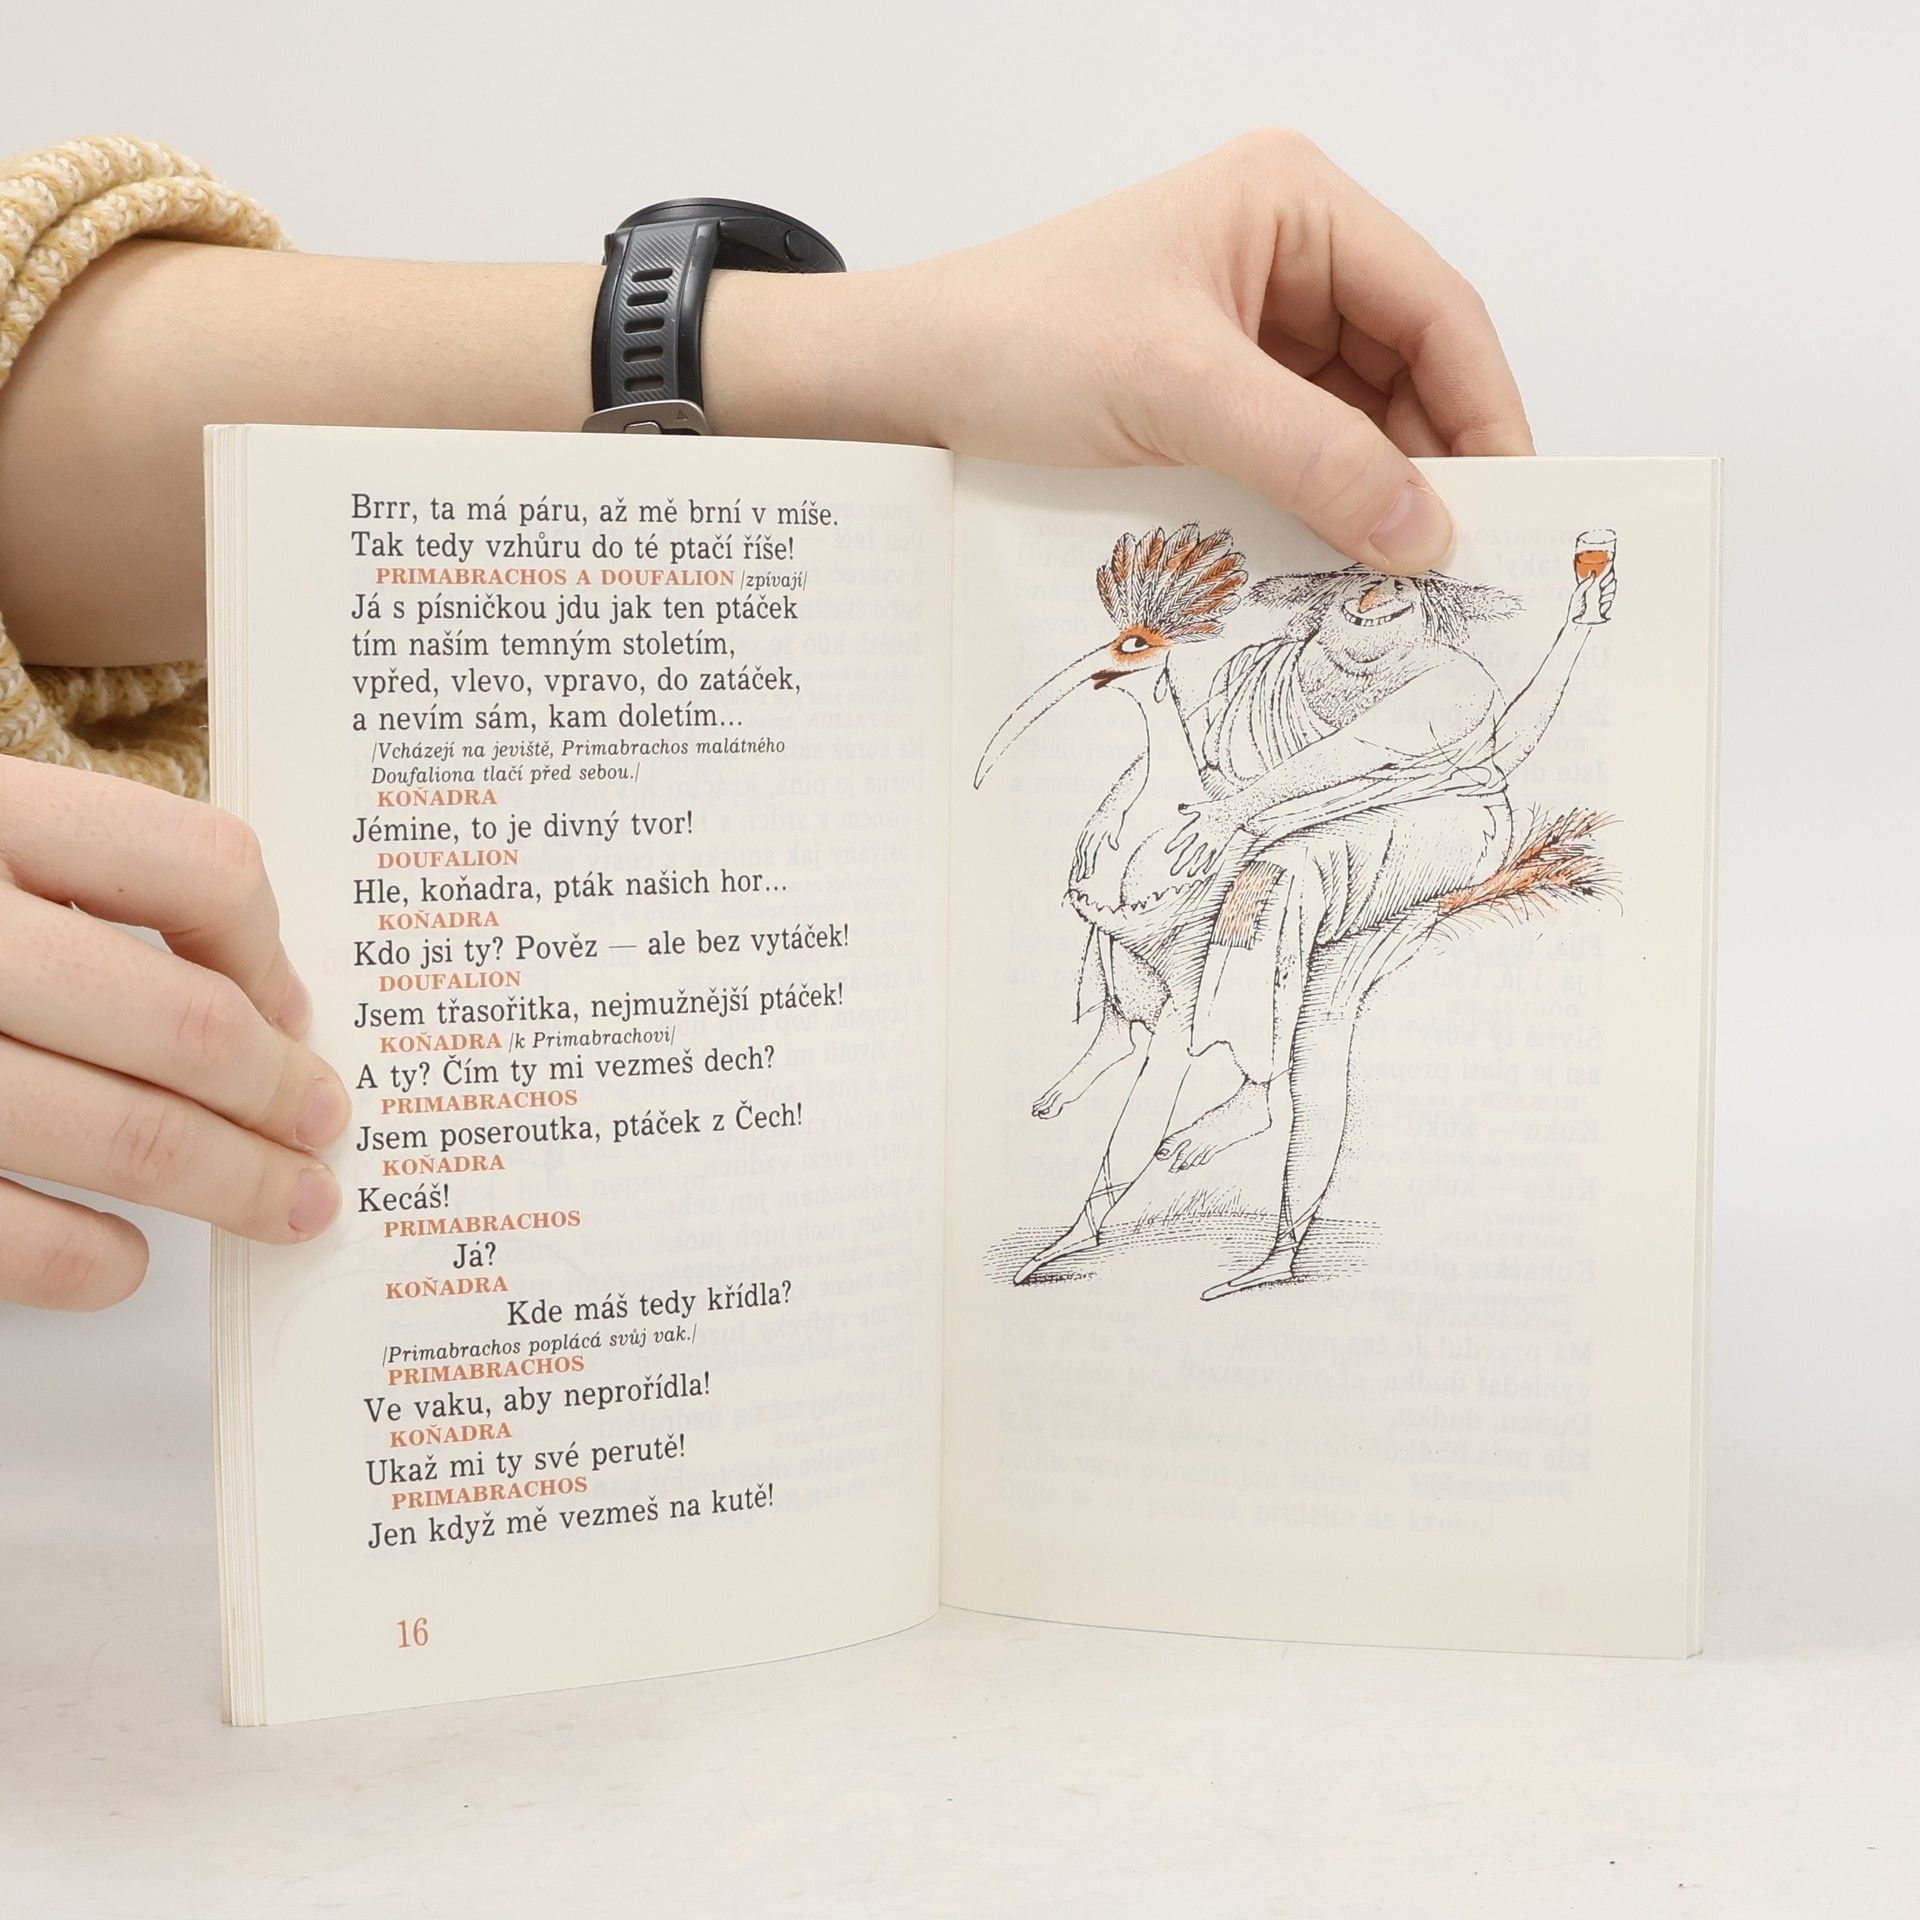 Brrr, ta má páru, až mě brní v míše.
Tak tedy vzhůru do té ptačí říše!
PRIMABRACHOS A DOUFALION /zpívají/
Já s písničkou jdu jak ten ptáček
tím naším temným stoletím,
vpřed, vlevo, vpravo, do zatáček,
a nevím sám, kam doletím...
/Vcházejí na jeviště, Primabrachos malátného
Doufaliona tlačí před sebou./
KOŇADRA
Jémine, to je divný tvor!
DOUFALION
Hle, koňadra, pták našich hor...
KOŇADRA
Kdo jsi ty? Pověz — ale bez vytáček!
DOUFALION
Jsem třasořitka, nejmužnější ptáček!
KOŇADRA /k Primabrachovi/
A ty? Čím ty mi vezmeš dech?
PRIMABRACHOS
Jsem poseroutka, ptáček z Čech!
KOŇADRA
Kecáš!
PRIMABRACHOS
Já?
KOŇADRA
Kde máš tedy křídla?
/Primabrachos poplácá svůj vak./
PRIMABRACHOS
Ve vaku, aby neprořídla!
KOŇADRA
Ukaž mi ty své perutě!
PRIMABRACHOS
Jen když mě vezmeš na kutě!
16